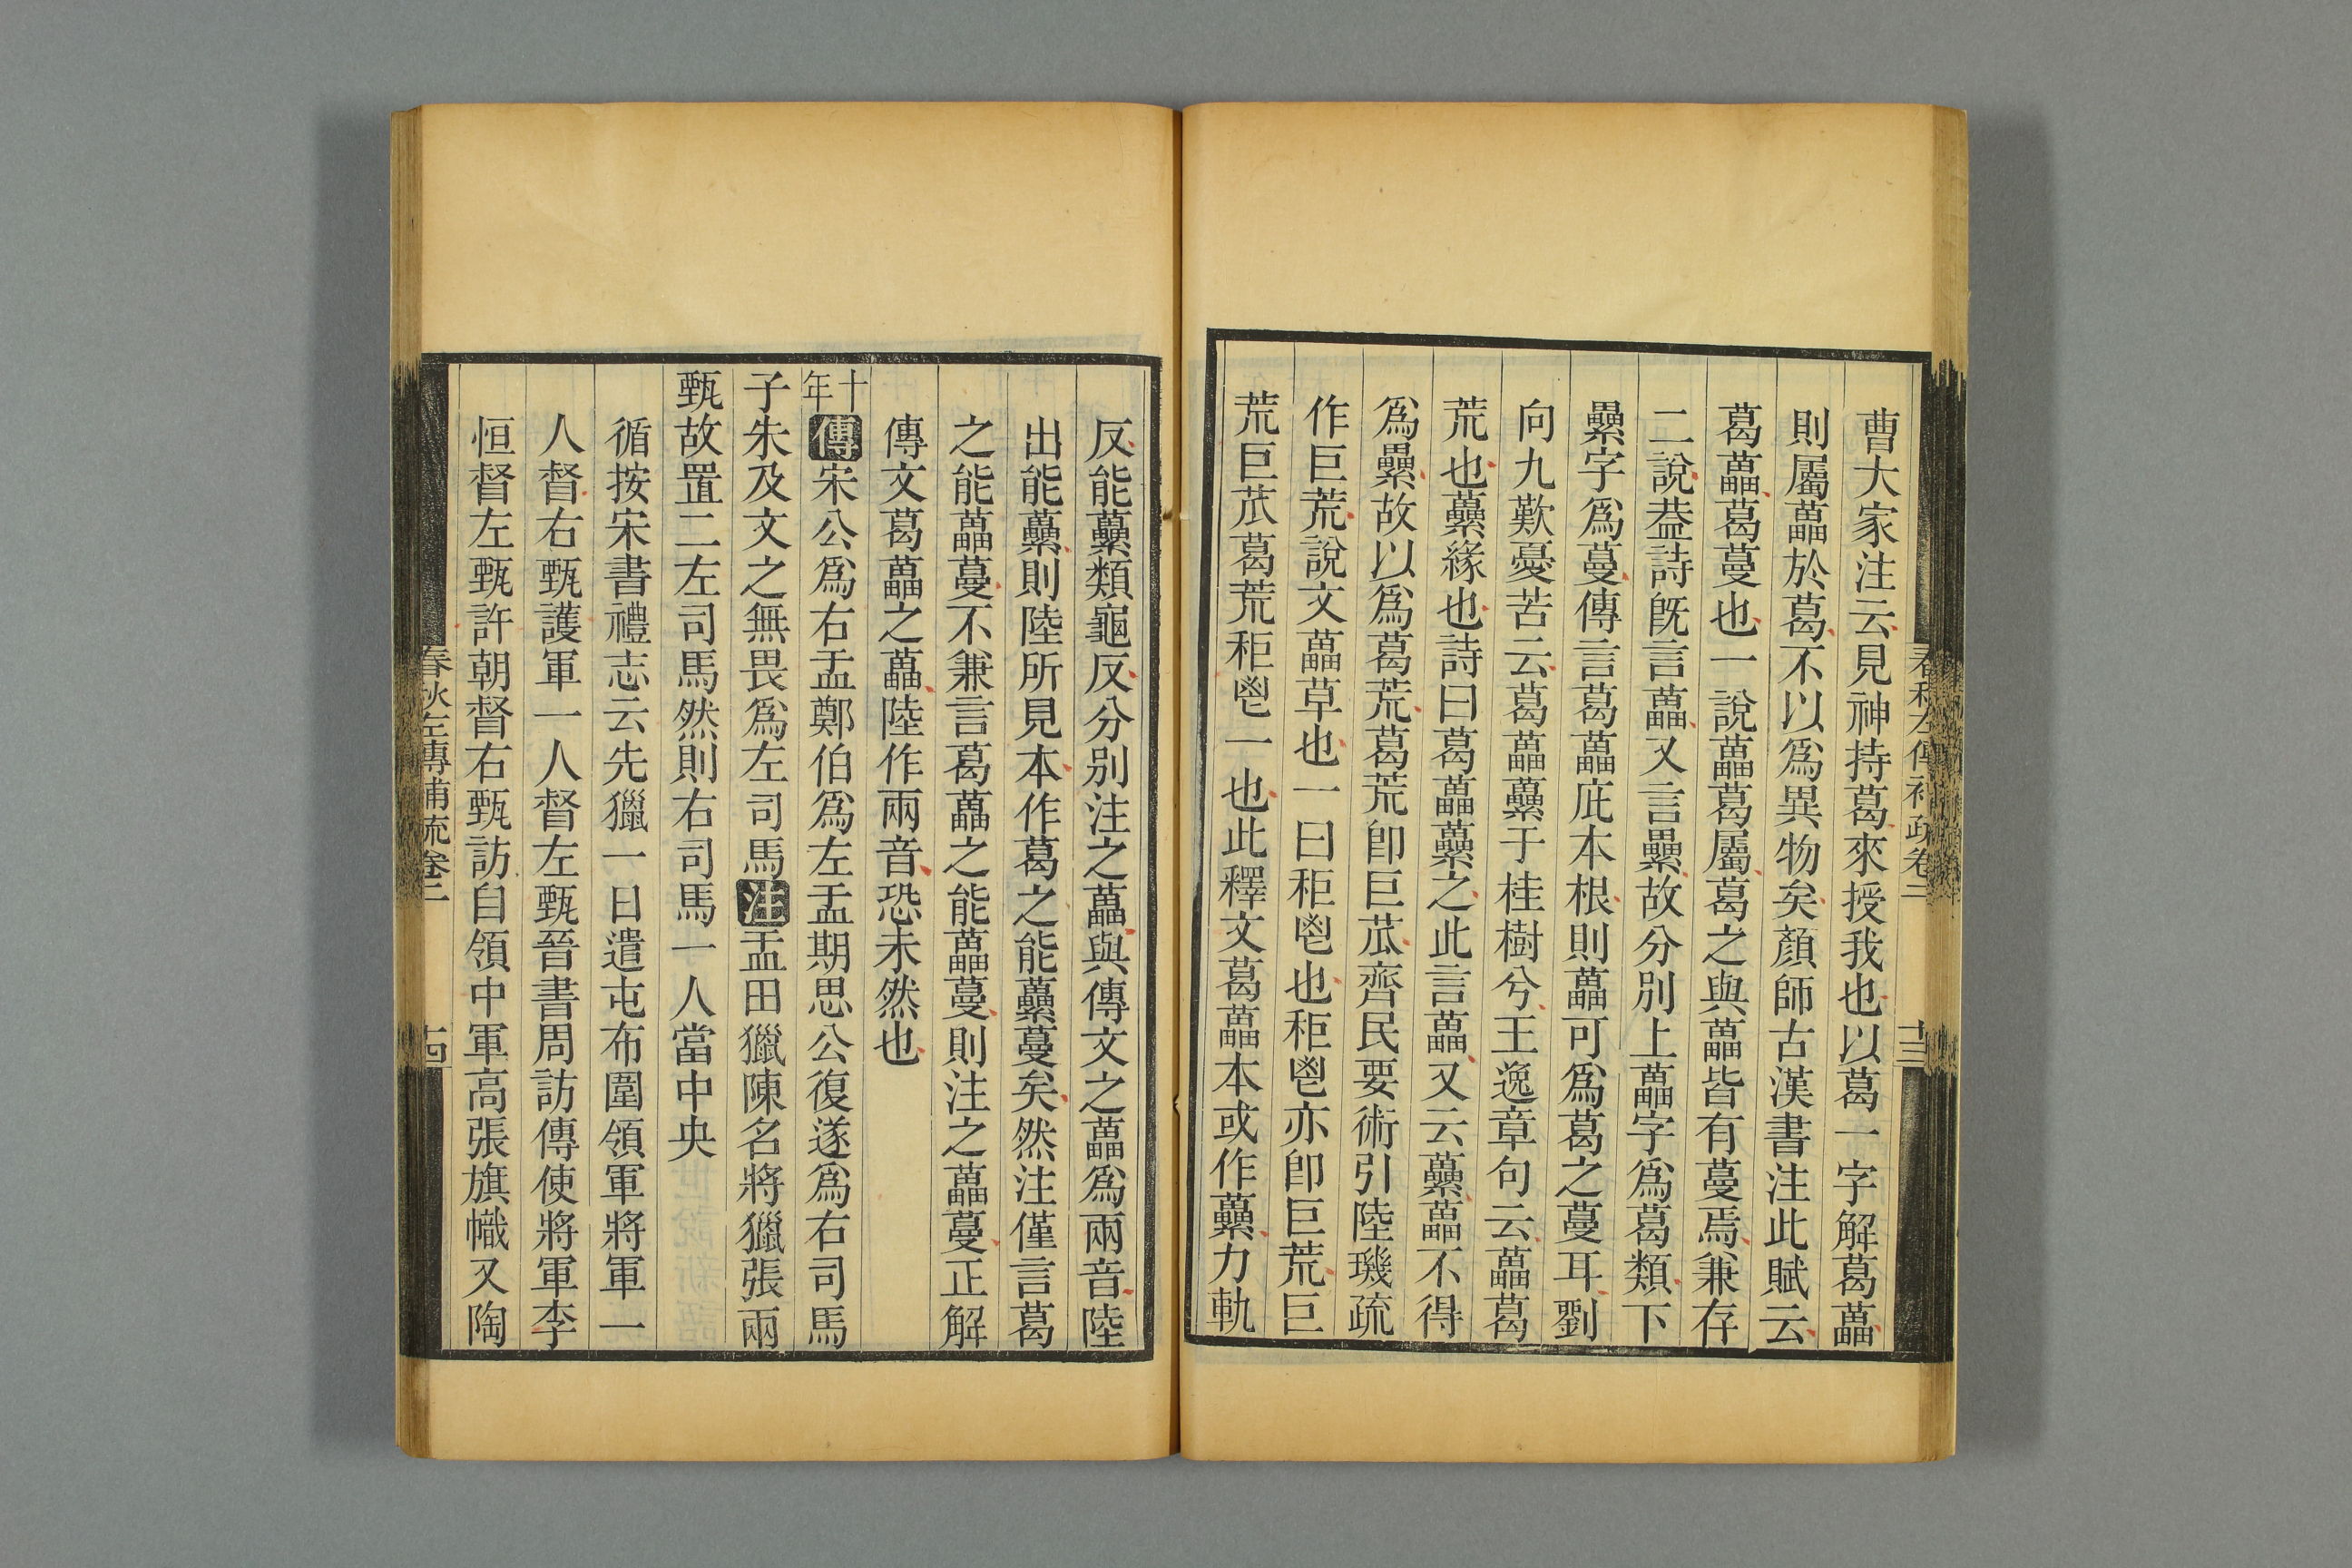 春秋左傳補疏卷二
十三
曹大家注云見神持葛來授我也以葛一字解葛藟
則屬藟於葛不以爲異物矣顏師古漢書注此賦云
葛藟葛蔓也一說藟葛屬葛之與藟皆有蔓焉兼存
二說葢詩旣言藟又言纍故分別上藟字爲葛類下
纍字爲蔓傳言葛藟庇本根則藟可爲葛之蔓耳劉
向九歎憂苦云葛藟虆于桂樹兮王逸章句云藟葛
荒也虆緣也詩曰葛藟虆之此言藟又云虆藟不得
爲纍故以爲葛荒葛荒卽巨苽齊民要術引陸璣疏
作巨荒說文藟草也一曰秬鬯也秬鬯亦卽巨荒巨
荒巨苽葛荒秬鬯一也此釋文葛藟本或作虆力軌
反能虆類龜反分別注之藟與傳文之藟爲兩音陸
出能虆則陸所見本作葛之能虆蔓矣然注僅言葛
之能藟蔓不兼言葛藟之能藟蔓則注之藟蔓正解
傳文葛藟之藟陸作兩音恐未然也
十年傳宋公爲右盂鄭伯爲左盂期思公復遂爲右司馬
子朱及文之無畏爲左司馬注盂田獵陳名將獵張兩
甄故置二左司馬然則右司馬一人當中央
循按宋書禮志云先獵一日遣屯布圍領軍將軍一
人督右甄護軍一人督左甄晉書周訪傳使將軍李
恒督左甄許朝督右甄訪自領中軍高張旗幟又陶
春秋左傳補疏卷二
十四